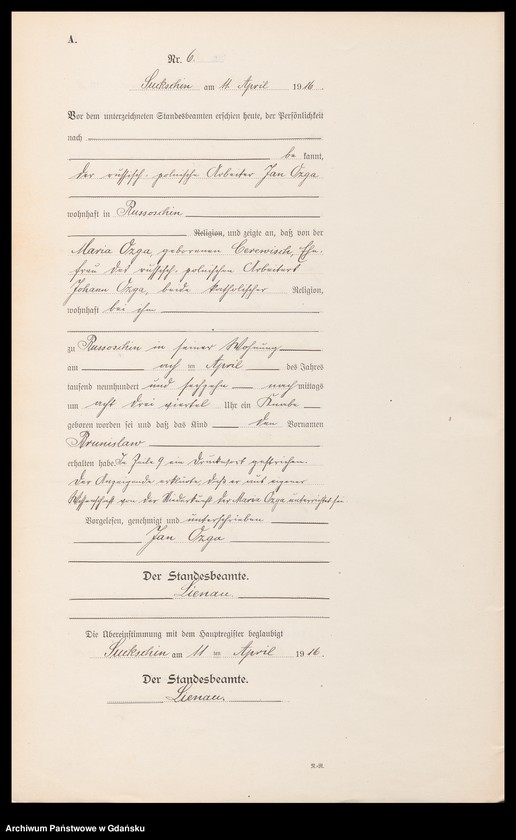 A.
Nr. 6.
Suckschin am 11. April 1916.
Vor dem unterzeichneten Standesbeamten erschien heute, der Persönlichkeit
nach
be kannt,
der russisch-polnische Arbeiter Jan Ozga
wohnhaft in Russoschin
Religion, und zeigte an, daß von der
Maria Ozga, geborenen Cerewisch, Ehe-
frau des russisch-polnischen Arbeiters
Johann Ozga, beide katholischer Religion,
wohnhaft bei ihm
zu Russoschin in seiner Wohnung
am April des Jahres
tausend neunhundert und sechzehn nachmittags
um acht drei viertel Uhr ein Knabe
geboren worden sei und daß das Kind den Vornamen
Bronislaw
erhalten habe. In Zeile 9 ein Druckwort gestrichen.
Der Anzeigende erklärte, daß er aus eigener
Wissenschaft von der Niederkunft der Maria Ozga unterrichtet sei
Vorgelesen, genehmigt und unterschrieben
Jan Ozga
Der Standesbeamte.
Lienau.
Die Übereinstimmung mit dem Hauptregister beglaubigt
Suckschin am 11 ten April 1916.
Der Standesbeamte.
Lienau.
N.-R.
Archiwum Państwowe w Gdańsku